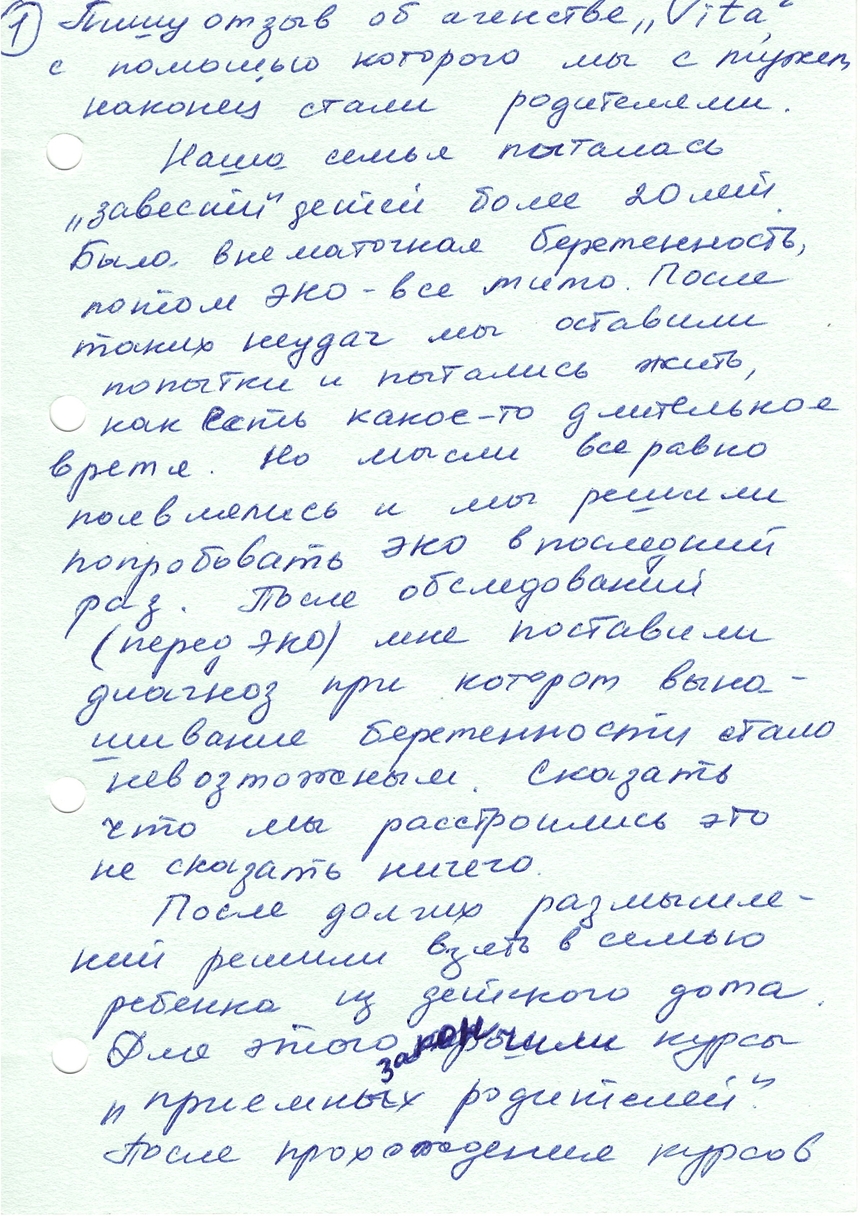 1 Пишу отзыв об агенстве „Vita“
с помощью которого мы с мужем
наконец стали родителями.
Наша семья пыталась
„завести“ детей более 20 лет.
Была внематочная беременность,
потом ЭКО - все мимо. После
таких неудач мы оставили
попытки и пытались жить,
как есть какое-то длительное
время. Но мысли все равно
появлялись и мы решили
попробовать ЭКО в последний
раз. После обследований
(перед ЭКО) мне поставили
диагноз при котором вына-
шивание беременности стало
невозможным. Сказать
что мы расстроились это
не сказать ничего.
После долгих размышле-
ний решили взять в семью
ребенка из детского дома.
Для этого закончили курсы
„приемных родителей“.
После прохождения курсов